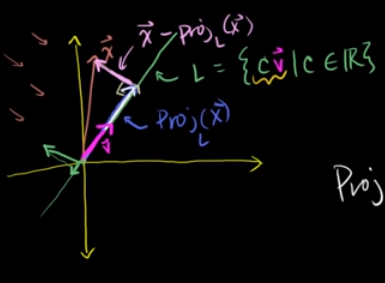 x⃗ - Proj_L(x⃗)
x⃗
L = {c v⃗ | c ∈ ℝ}
Proj_L(x⃗)
v⃗
Proj